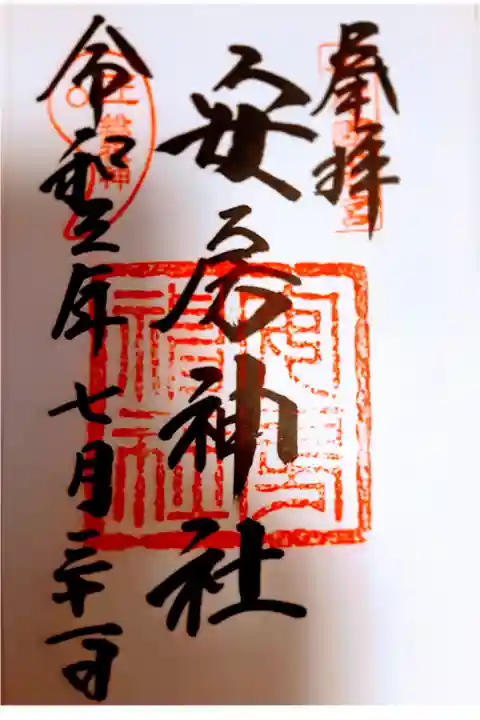 奉拝
安房神社
令和三年七月二十一日